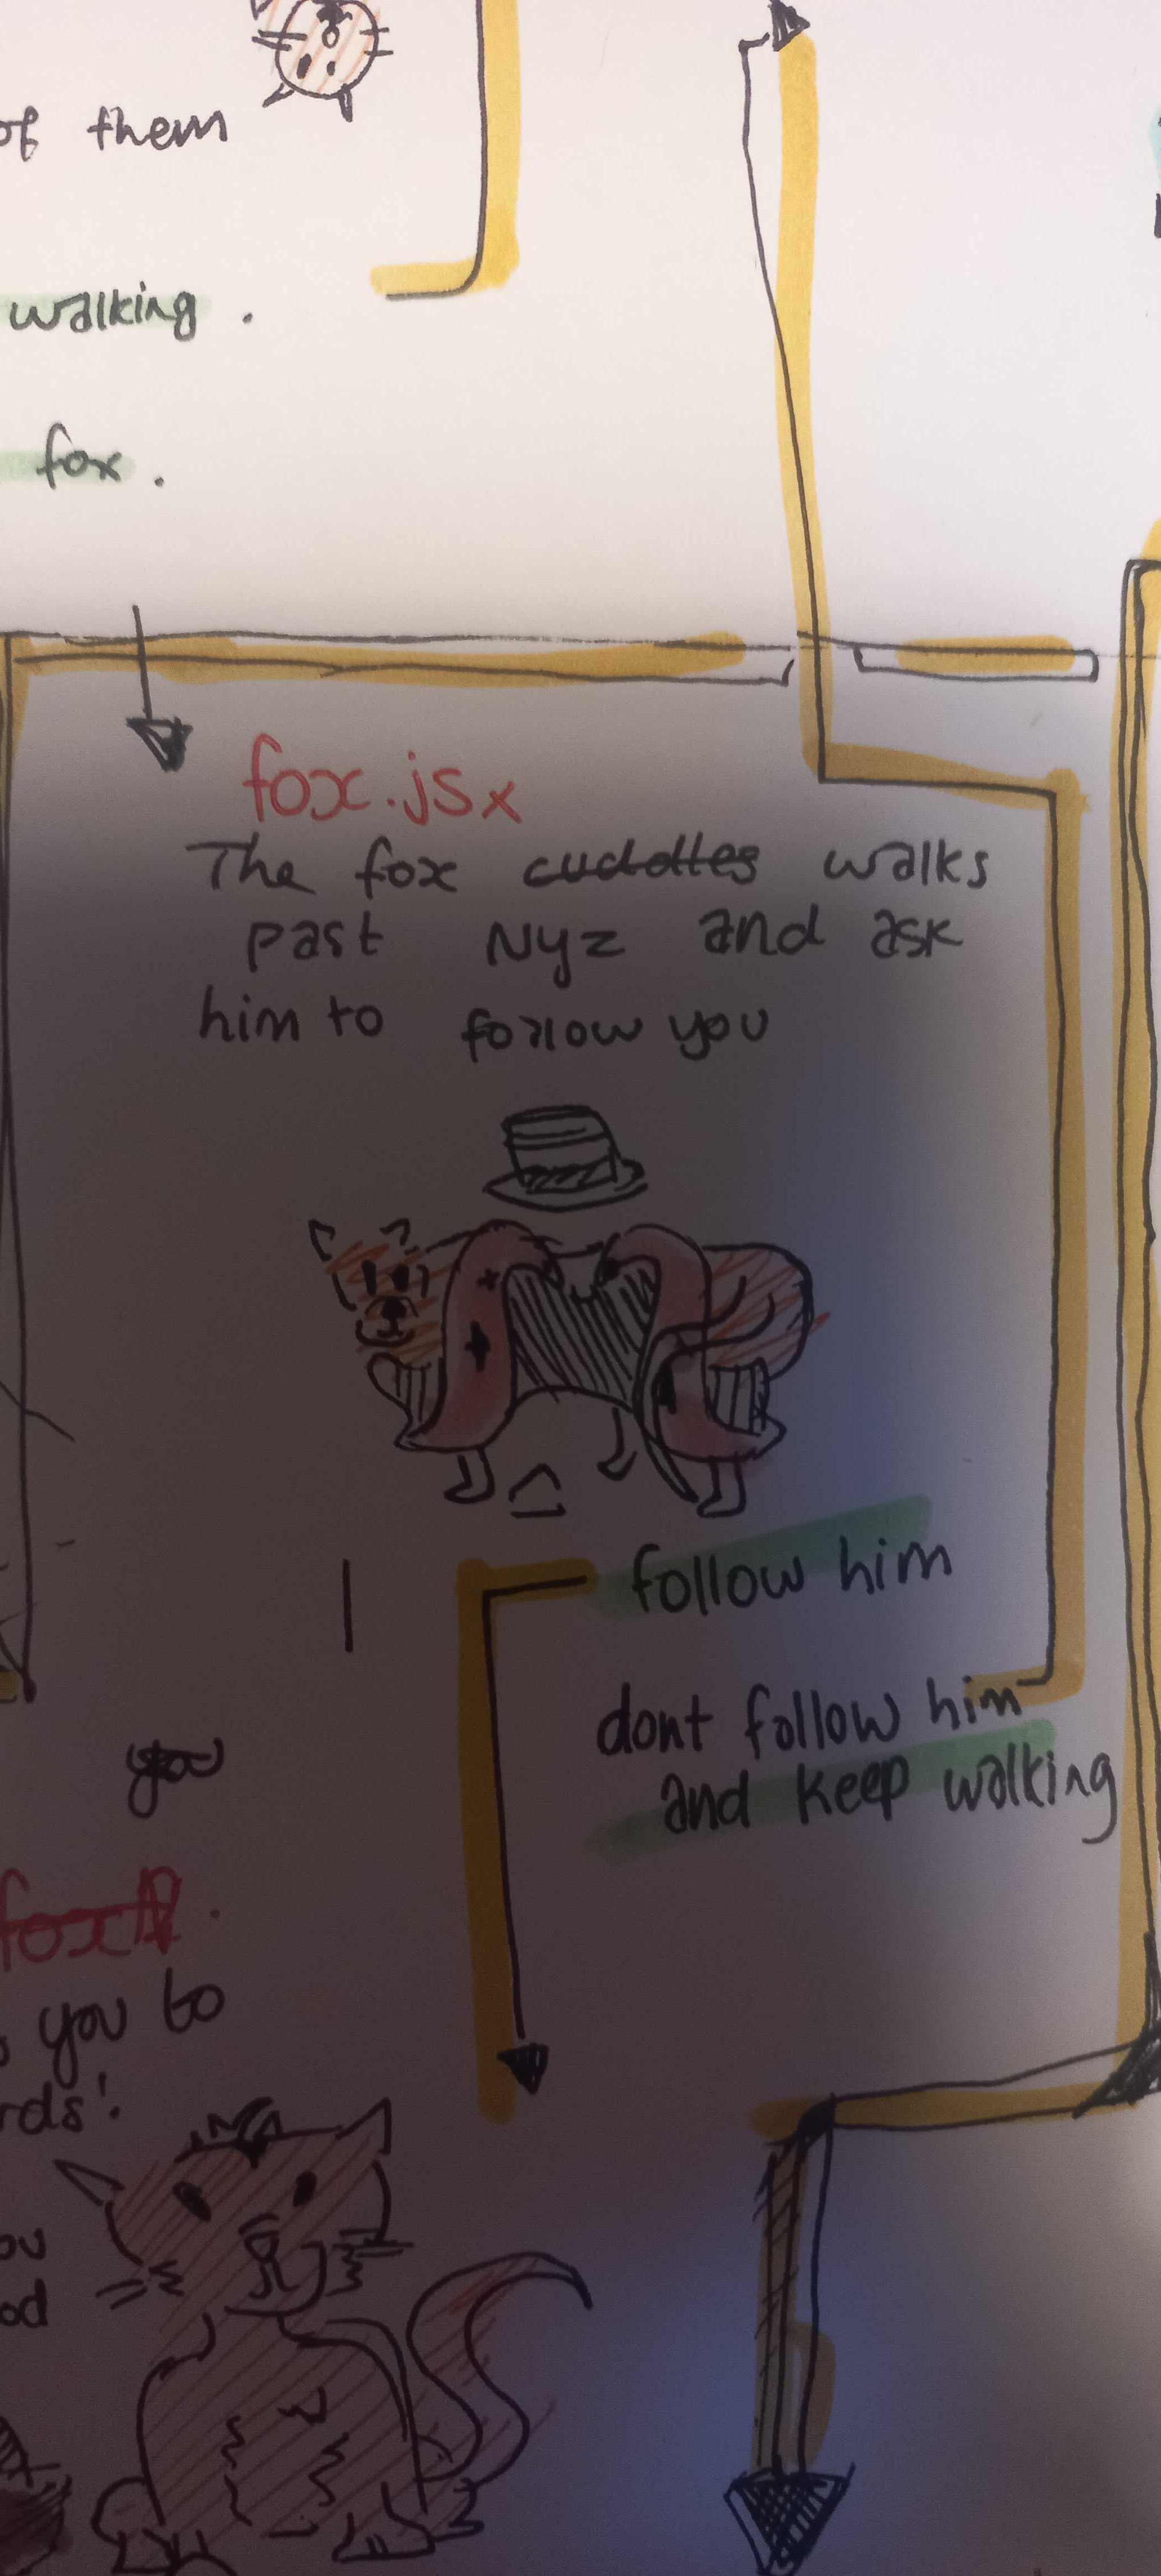 of them
walking.
fox.
fox.jsx
The fox cuddles walks
past Nyz and ask
him to follow you
follow him
dont follow him
and keep walking
you
fox
you to